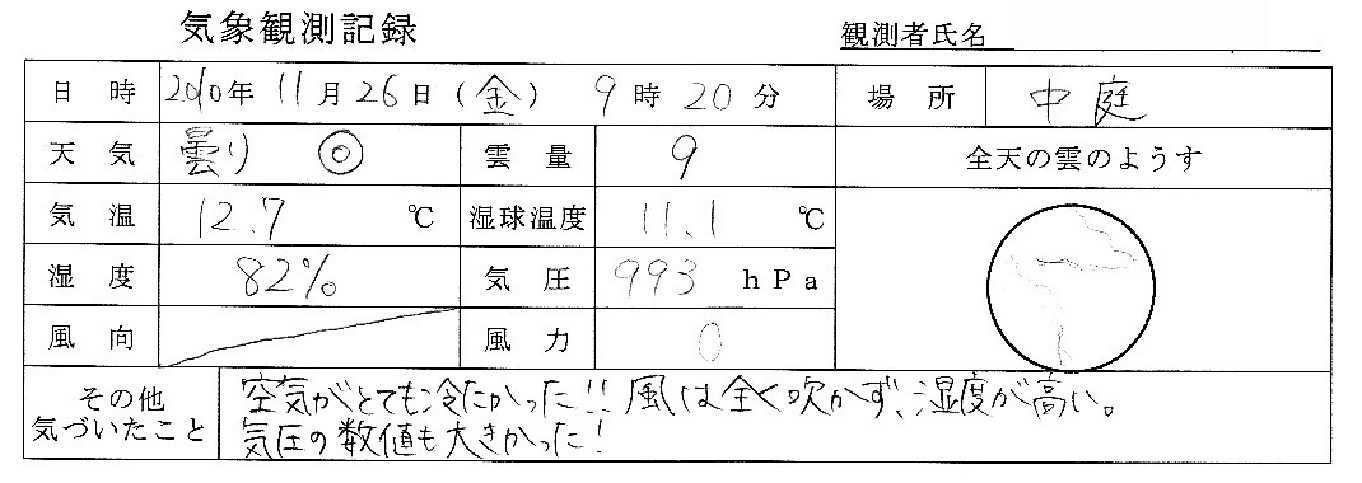 気象観測記録
観測者氏名
日時 2010年 11月 26日 (金) 9時 20分 場所 中庭
天気 曇り ◎ 雲量 9 全天の雲のようす
気温 12.7 ℃ 湿球温度 11.1 ℃
湿度 82% 気圧 993 hPa
風向 風力 0
その他 空気がとても冷たかった!! 風は全く吹かず、湿度が高い。
気づいたこと 気圧の数値も大きかった!